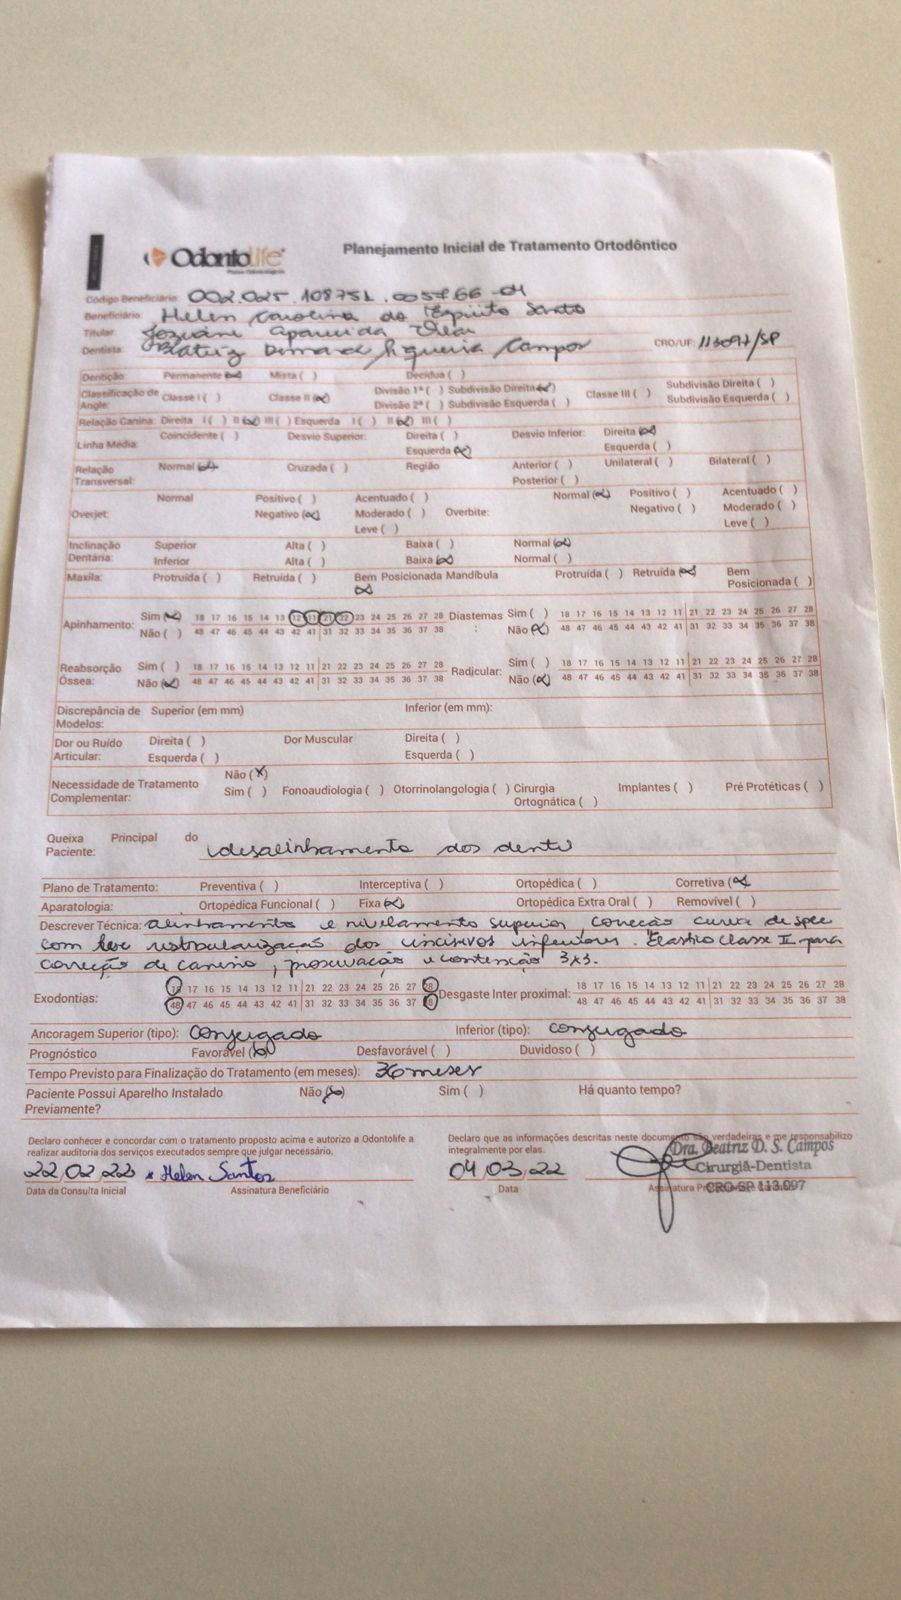 OdontoLife
Planejamento Inicial de Tratamento Ortodôntico
Código Beneficiário: 002.025.108751.005766-04
Beneficiário: Helen Carolina do Espirito Santo
Titular: Joziane Aparecida
Dentista: Beatriz Campos CRO/UF: 113097/SP
Dentição: Permanente (x) Mista ( ) Decídua ( )
Classificação de Angle: Classe I ( ) Classe II (x) Divisão 1ª ( ) Subdivisão Direita (x) Classe III ( ) Subdivisão Direita ( )
Divisão 2ª ( ) Subdivisão Esquerda ( ) Subdivisão Esquerda ( )
Relação Canina: Direita I ( ) II (x) III ( ) Esquerda I ( ) II (x) III ( )
Linha Média: Coincidente ( ) Desvio Superior: Direita ( ) Desvio Inferior: Direita (x)
Esquerda (x) Esquerda ( )
Relação Transversal: Normal (x) Cruzada ( ) Região Anterior ( ) Unilateral ( ) Bilateral ( )
Posterior ( )
Overjet: Normal Positivo ( ) Acentuado ( ) Overbite: Normal (x) Positivo ( ) Acentuado ( )
Negativo (x) Moderado ( ) Negativo ( ) Moderado ( )
Leve ( ) Leve ( )
Inclinação Dentária: Superior Alta ( ) Baixa ( ) Normal (x)
Inferior Alta ( ) Baixa (x) Normal ( )
Maxila: Protruída ( ) Retruída ( ) Bem Posicionada (x) Mandíbula Protruída ( ) Retruída (x) Bem Posicionada ( )
Apinhamento: Sim (x) 18 17 16 15 14 13 12 11 21 22 23 24 25 26 27 28 Diastemas: Sim ( ) 18 17 16 15 14 13 12 11 21 22 23 24 25 26 27 28
Não ( ) 48 47 46 45 44 43 42 41 31 32 33 34 35 36 37 38 Não (x) 48 47 46 45 44 43 42 41 31 32 33 34 35 36 37 38
Reabsorção Óssea: Sim ( ) 18 17 16 15 14 13 12 11 21 22 23 24 25 26 27 28 Radicular: Sim ( ) 18 17 16 15 14 13 12 11 21 22 23 24 25 26 27 28
Não (x) 48 47 46 45 44 43 42 41 31 32 33 34 35 36 37 38 Não (x) 48 47 46 45 44 43 42 41 31 32 33 34 35 36 37 38
Discrepância de Modelos: Superior (em mm) Inferior (em mm):
Dor ou Ruído Articular: Direita ( ) Dor Muscular Direita ( )
Esquerda ( ) Esquerda ( )
Necessidade de Tratamento Complementar: Não (x)
Sim ( ) Fonoaudiologia ( ) Otorrinolangologia ( ) Cirurgia Ortognática ( ) Implantes ( ) Pré Protéticas ( )
Queixa Principal do Paciente: desalinhamento dos dente
Plano de Tratamento: Preventiva ( ) Interceptiva ( ) Ortopédica ( ) Corretiva (x)
Aparatologia: Ortopédica Funcional ( ) Fixa (x) Ortopédica Extra Oral ( ) Removível ( )
Descrever Técnica: alinhamento e nivelamento superior, correção curva de spee
com leve vestibularização dos incisivos inferiores. Elastico Classe II para
correção de canino, proservação e contenção 3x3.
Exodontias: 18 17 16 15 14 13 12 11 21 22 23 24 25 26 27 28 Desgaste Inter proximal: 18 17 16 15 14 13 12 11 21 22 23 24 25 26 27 28
48 47 46 45 44 43 42 41 31 32 33 34 35 36 37 38 48 47 46 45 44 43 42 41 31 32 33 34 35 36 37 38
Ancoragem Superior (tipo): conjugado Inferior (tipo): conjugado
Prognóstico Favorável (x) Desfavorável ( ) Duvidoso ( )
Tempo Previsto para Finalização do Tratamento (em meses): 36 meses
Paciente Possui Aparelho Instalado Previamente? Não (x) Sim ( ) Há quanto tempo?
Declaro conhecer e concordar com o tratamento proposto acima e autorizo a Odontolife a
realizar auditoria dos serviços executados sempre que julgar necessário.
Declaro que as informações descritas neste documento são verdadeiras e me responsabilizo
integralmente por elas.
22 02 22 Helen Santos 04 03 22
Dra. Beatriz D. S. Campos
Cirurgiã-Dentista
CRO-SP 113.097
Data da Consulta Inicial Assinatura Beneficiário Data